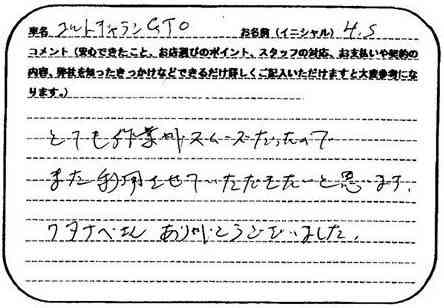 車名 コルトギャランGTO お名前(イニシャル) H.S
コメント(安心できたこと、お店選びのポイント、スタッフの対応、お支払いや契約の
内容、弊社を知ったきっかけなどできるだけ詳しくご記入いただけますと大変参考にな
ります。)
とても作業がスムーズだったので
また利用させていただきたいと思います。
ワタナベさん ありがとうございました。